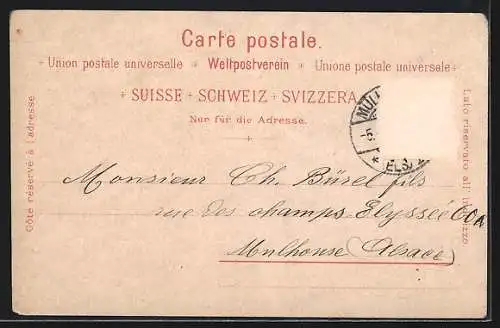 Carte postale.
Union postale universelle + Weltpostverein + Unione postale universale
+ SUISSE + SCHWEIZ + SVIZZERA
Nur für die Adresse.
Côte réservé à l'adresse
Lato riservato all'
MÜL
ELS.
Monsieur Ch. Bürel fils
rue des champs Elyssée 60A
Mulhouse (Alsace)